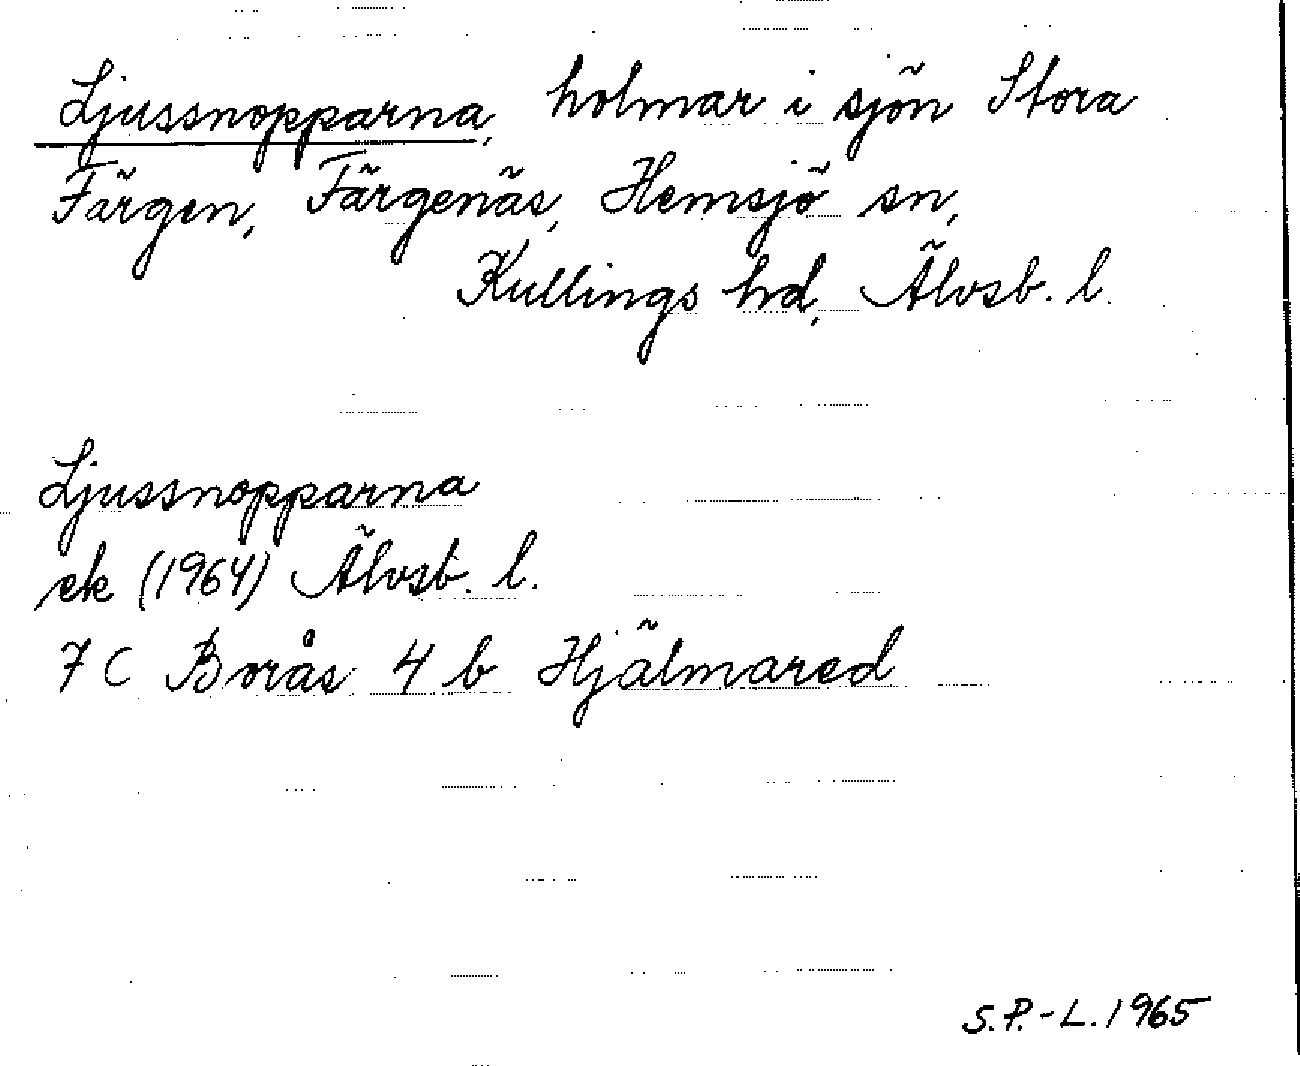 Ljussnopparna, holmar i sjön Stora
Färgen, Färgenäs, Hemsjö sn,
Kullings hd, Älvsb. l.
Ljussnopparna
ek (1964) Älvsb. l.
7 C Borås 4 b Hjälmared
S.P.-L. 1965